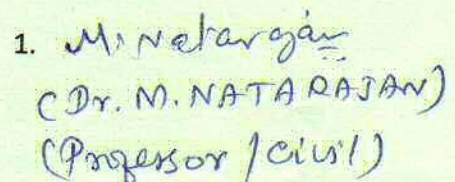 1. M. Natarajan
(Dr. M. NATARAJAN)
(Professor / Civil)